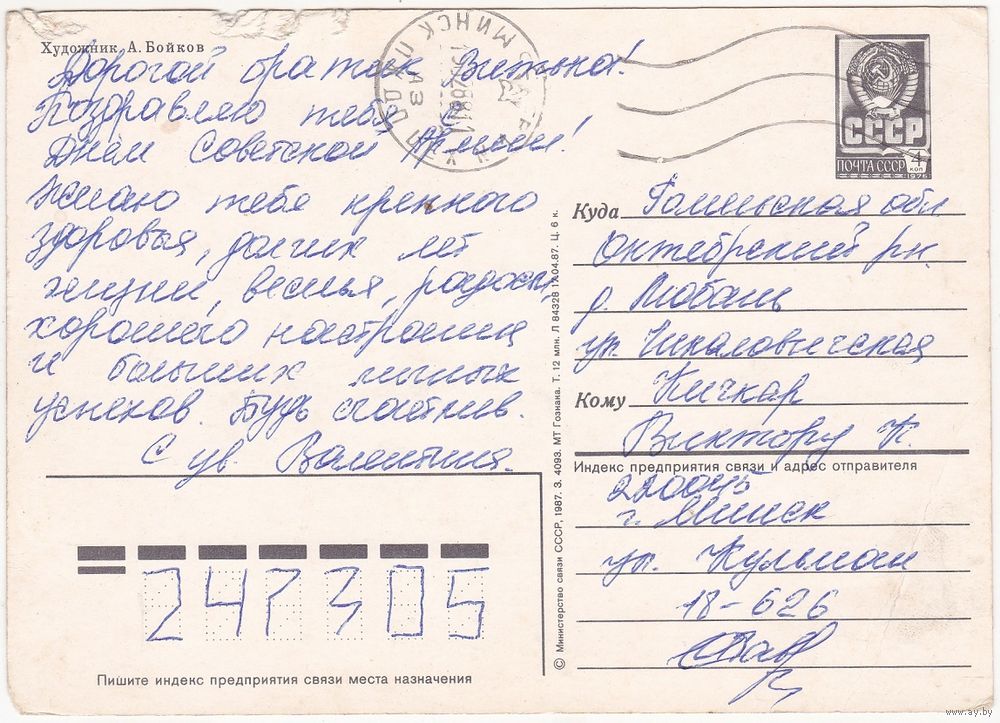 Художник А. Бойков
Дорогой браток Витька!
Поздравляю тебя с
Днём Советской Армии!
Желаю тебе крепкого
здоровья, долгих лет
жизни, веселья, радости,
хорошего настроения
и больших личных
успехов. Будь счастлив.
С ув. Валентина.
СССР
ПОЧТА СССР
4 КОП
1976
МИНСК
Куда Гомельская обл
Октябрьский рн.
д. Любань
ул. Чкаловическая
Кому Кичкар
Виктору К.
Индекс предприятия связи и адрес отправителя
г. Минск
ул. Кульман
18-626
247305
Пишите индекс предприятия связи места назначения
© Министерство связи СССР, 1987. З. 4093. МТ Гознака. Т. 12 млн. Л 84328 17.04.87. Ц. 6 к.
www.ay.by